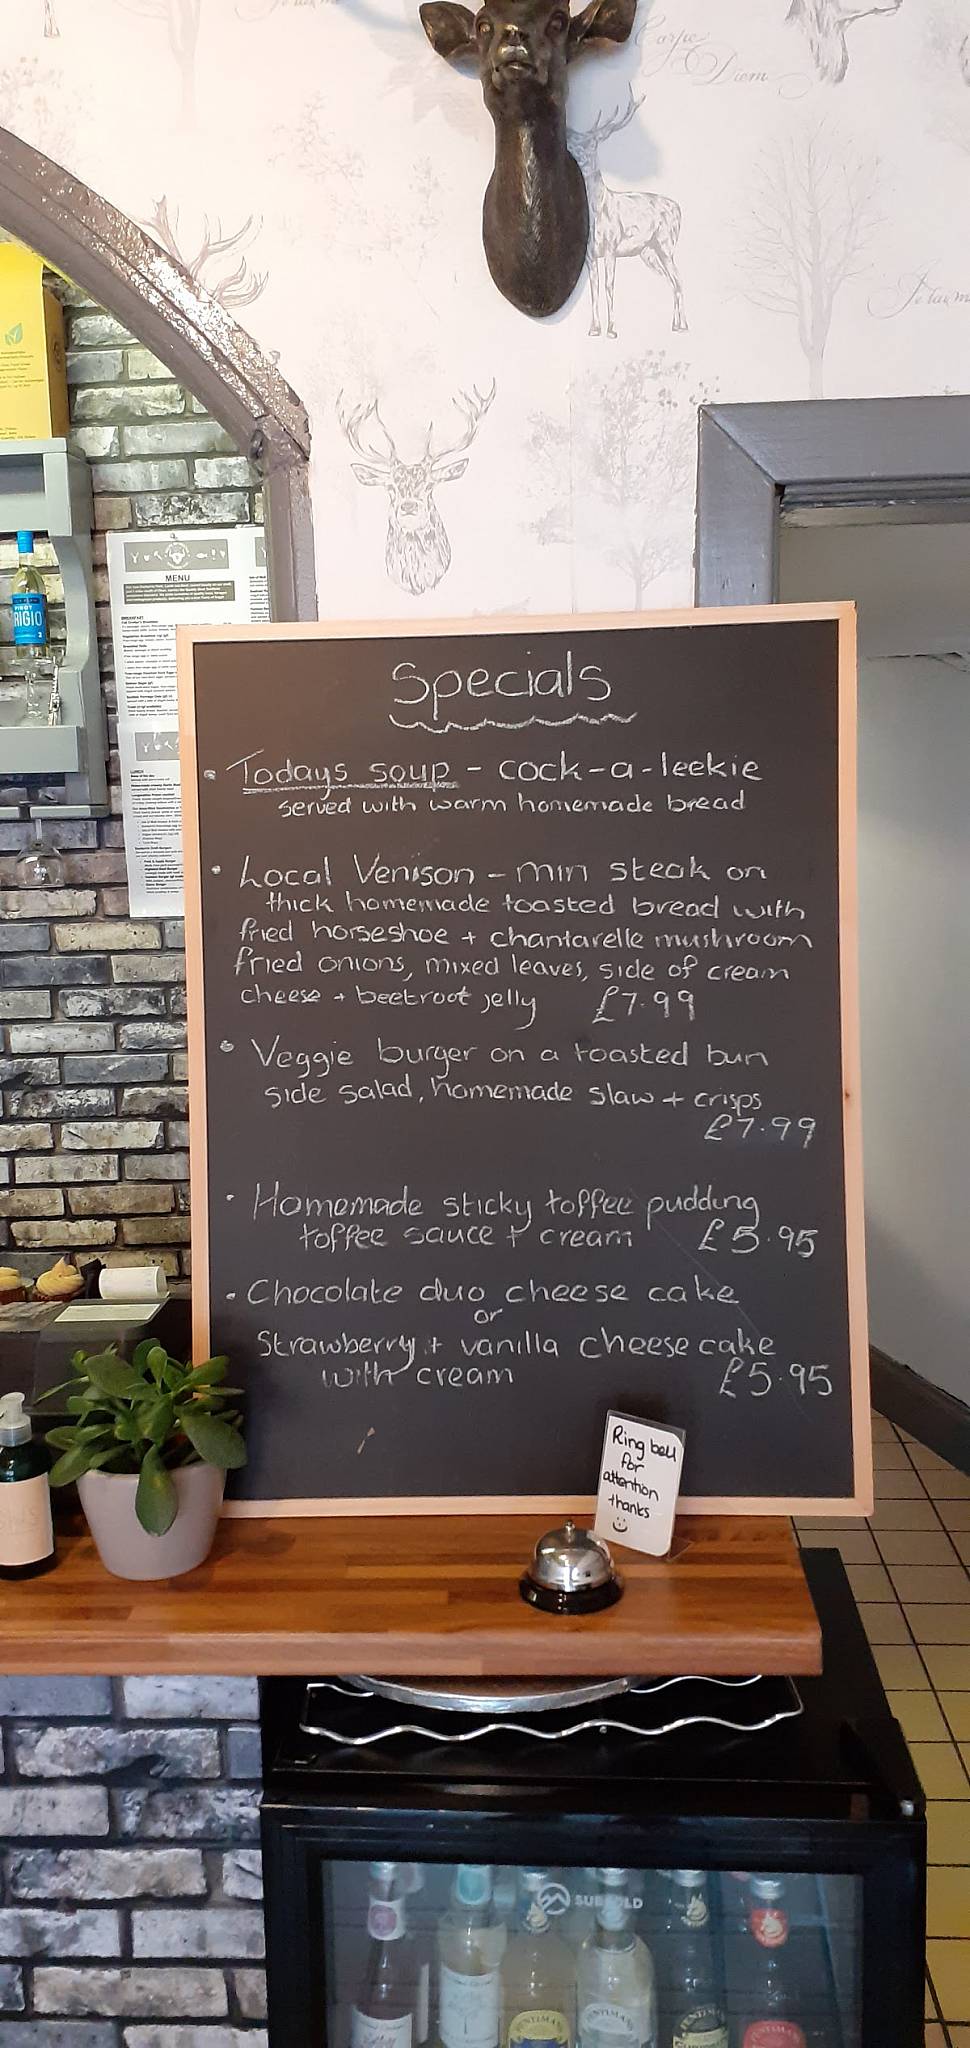 Carpe
Diem
MENU
PINOT
RIGIO
Specials
• Todays soup - cock-a-leekie
served with warm homemade bread
• Local Venison - min steak on
thick homemade toasted bread with
fried horseshoe + chantarelle mushroom
fried onions, mixed leaves, side of cream
cheese + beetroot jelly £7.99
• Veggie burger on a toasted bun
side salad, homemade slaw + crisps
£7.99
• Homemade sticky toffee pudding
toffee sauce + cream £5.95
• Chocolate duo cheese cake
or
Strawberry + vanilla cheese cake
with cream £5.95
Ring bell
for
attention
thanks
SUBCOLD